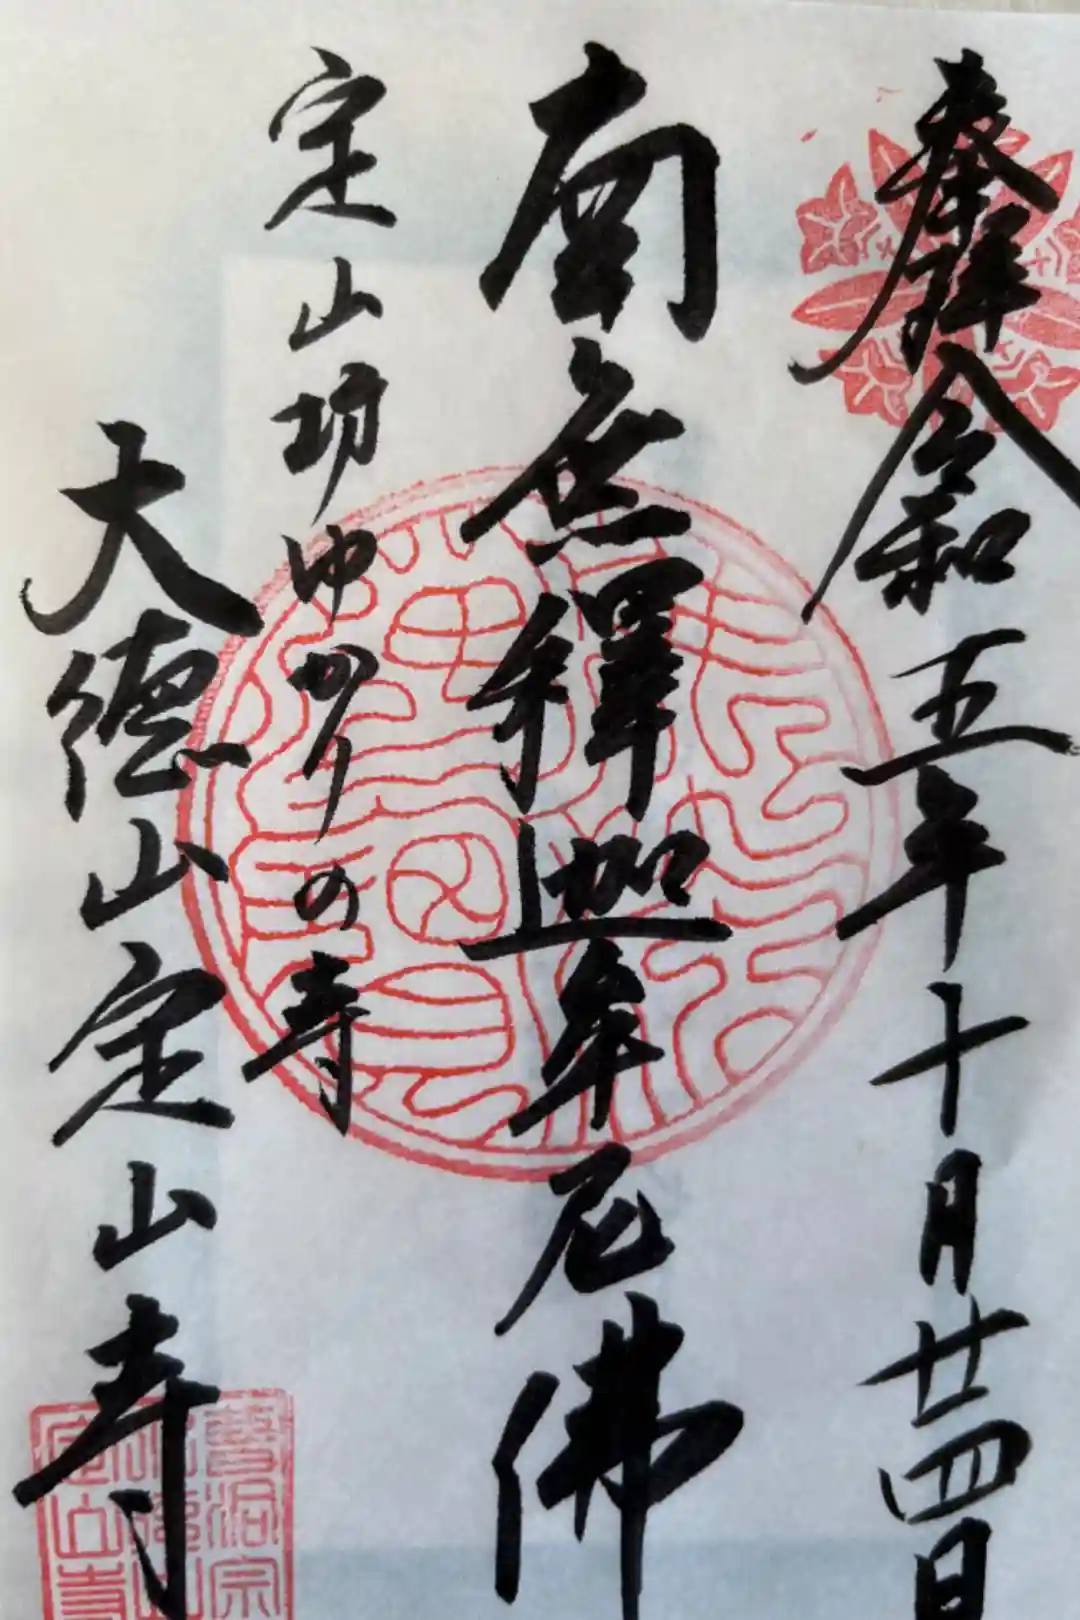 奉拝 令和五年十月廿四日
南無釋迦牟尼佛
定山坊ゆかりの寺
大徳山定山寺
曹洞宗
大德山
定山寺